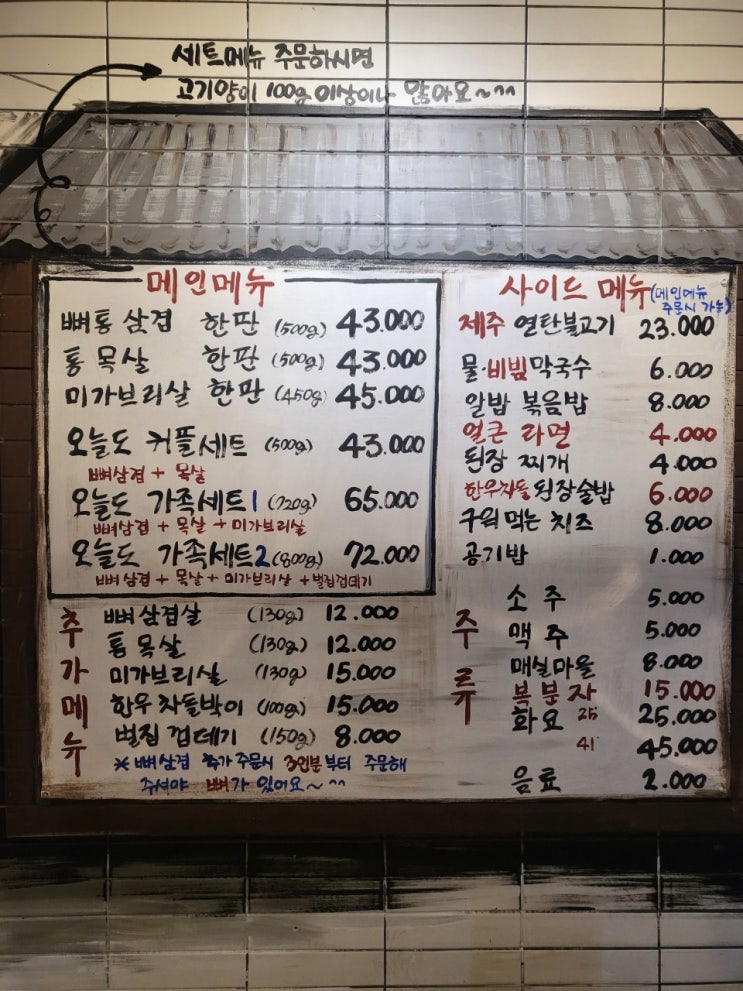 세트메뉴 주문하시면
고기양이 100g 이상이나 많아요~^^
메인메뉴
뼈통삼겹 한판 (500g) 43.000
통목살 한판 (500g) 43.000
미가브리살 한판 (450g) 45.000
오늘도 커플세트 (500g) 43.000
뼈삼겹 + 목살
오늘도 가족세트1 (720g) 65.000
뼈삼겹 + 목살 + 미가브리살
오늘도 가족세트2 (800g) 72.000
뼈삼겹 + 목살 + 미가브리살 + 벌집껍데기
추가메뉴
뼈삼겹살 (130g) 12.000
통목살 (130g) 12.000
미가브리살 (130g) 15.000
한우차돌박이 (100g) 15.000
벌집껍데기 (150g) 8.000
※ 뼈삼겹 추가주문시 3인분부터 주문해
주셔야 뼈가 있어요~^^
사이드 메뉴 (메인메뉴
주문시 가능)
제주 연탄불고기 23.000
물·비빔막국수 6.000
알밥 볶음밥 8.000
얼큰 라면 4.000
된장 찌개 4.000
한우차돌 된장술밥 6.000
구워먹는 치즈 8.000
공기밥 1.000
주류
소주 5.000
맥주 5.000
매실마을 8.000
복분자 15.000
화요 25 25.000
41 45.000
음료 2.000